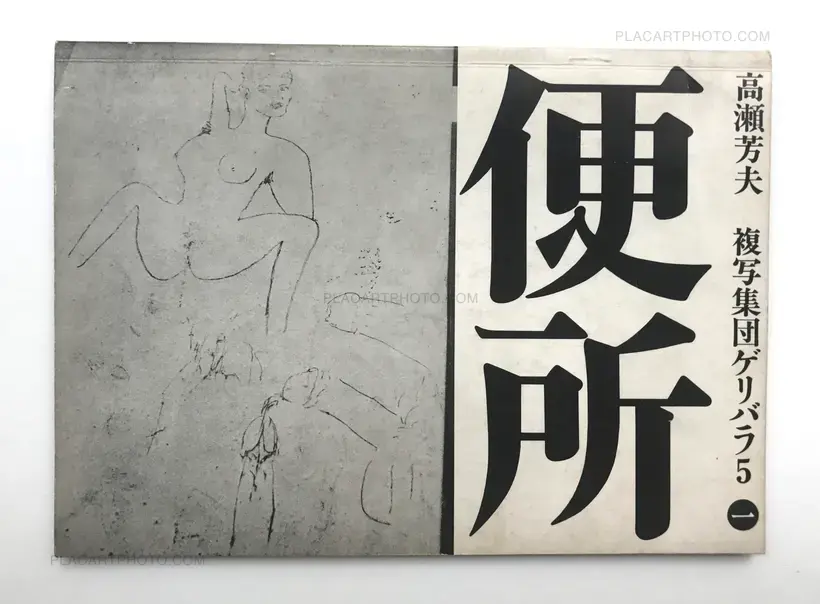 PLACARTPHOTO.COM
高瀬芳夫 複写集団ゲリバラ5 一
便所
PLACARTPHOTO.COM
PLACARTPHOTO.COM